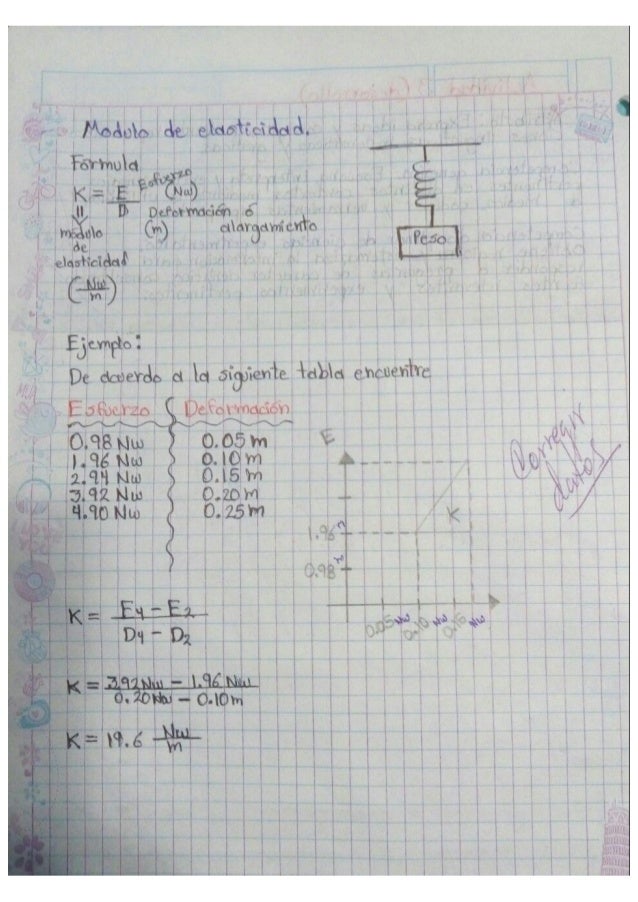 Modulo de elasticidad.
Fórmula
K = E Esfuerzo (Nw)
D Deformación ó
(m) alargamiento
módulo
de
elasticidad
(Nw/m)
Peso
Ejemplo:
De acuerdo a la siguiente tabla encuentre
Esfuerzo Deformación
0.98 Nw 0.05 m
1.96 Nw 0.10 m
2.94 Nw 0.15 m
3.92 Nw 0.20 m
4.90 Nw 0.25 m
E
K
1.96
0.98
0.05 Nw 0.10 Nw 0.15 Nw
Corregir
datos
K = E4 - E2
D4 - D2
K = 3.92 Nw - 1.96 Nw
0.20 Nw - 0.10 m
K = 19.6 Nw/m